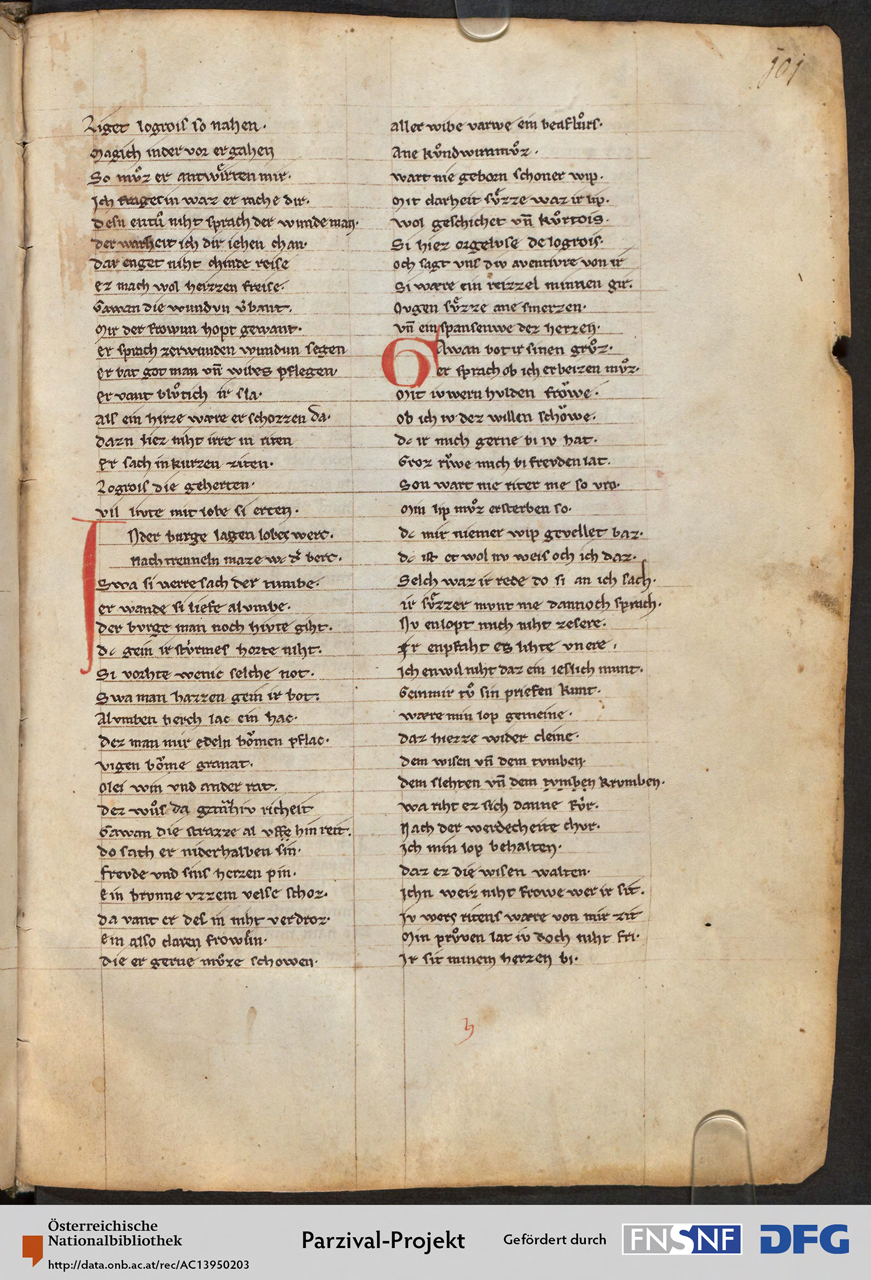 101
Liget logrois so nahen.
Magich in der vor ergahen
So mu̍z er antwu̍rten mir.
Ich frages in waz er rache dir.
Desn entu̍ niht sprach der wunde man.
der warheit ich dir iehen chan.
dar enget niht chinde reise
ez mach wol heizzen freise.
Gawan die wundun v̄bant.
Mit der frowun hopt gewant.
er sprach zer wunden wundun segen
er bat got man vn̄ wibes pflegen.
er vant blu̍tich ir sla.
Als ein hirze ware erschozzen da.
dazn liez niht irre in riten
er sach in kurzen ziten.
Logrois die geherten.
vil livte mit lobe si erten.
An der burge lagen lobes werc.
nach trenneln maze wc dr̄ berc.
Swa si verre sach der tumbe.
er wande si liefe alumbe.
der bvrge man noch hivte giht.
dc gein ir stu̍rmes horte niht.
Si vorhte wenic selche not.
Swa man hazzen gein ir bot.
Alvmben berch lac ein hac.
Dez man mir edeln bo̍men pflac.
vigen bo̍me granat.
Olei win vnd ander rat.
Dez wu̍s da ganzhiv richeit
Gawan die strazze al vffe hin reit.
do sach er niderhalben sin.
frevde vnd sins herzen pin.
ein brvnne vzzem velse schoz.
da vant er des in niht verdroz.
ein also claren frowlin.
die er gerne mu̍ze schowen.
aller wibe varwe ein beaflu̍rs.
Ane ku̍ndwiramu̍rz.
wart nie geborn schoner wip.
Mit clarheit su̍zze waz ir lip.
wol geschichet vn̄ ku̍rtois.
Si hiez orgelvse de logrois.
och sagt vns div aventivre von ir
Si ware ein reizzel minnen gir.
Ovgen su̍zze ane smerzen.
vn̄ ein spansenwe dez herzen.
Gawan bot ir sinen gru̍z.
er sprach ob ich erbeizen mu̍z.
Mit iwern hvlden fro̍we.
ob ich iv dez willen scho̍we.
dc ir mich gerne bi iv hat.
Groz ru̍we mich bi frevden lat.
Son wart nie riter me so vro.
Min lip mu̍z ersterben so.
dc mir niemer wip gevellet baz.
dc ist et wol nv weis och ich daz.
Selch waz ir rede do si an ich sach.
ir su̍zzer mvnt me dannoch sprach.
Nv enlopt mich niht zesere.
Ir enpfaht es lihte vnere.
Ich enwil niht daz ein ieslich munt.
Gein mir tu̍ sin priefen kunt.
ware min lop gemeine.
daz hiezze wider cleine.
dem wisen vn̄ dem tvmben.
dem slehten vn̄ dem tvmben krvmben.
wa riht ez sich danne fu̍r.
Nach der werdecheite chvr.
Ich min lop behalten.
daz ez die wisen walten.
Ichn weiz niht frowe wer ir sit.
Iv wers ritens ware von mir zit
Min pru̍ven lat iv doch niht fri.
Ir sit minem herzen bi.
Österreichische
Nationalbibliothek
http://data.onb.ac.at/rec/AC13950203
Parzival-Projekt
Gefördert durch
FNSNF
DFG